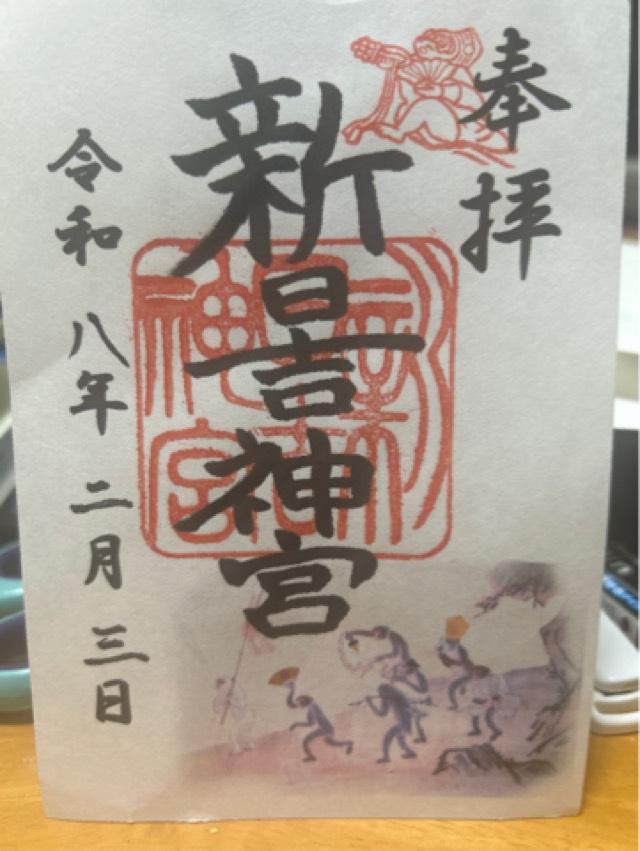 奉拝
新日吉神宮
令和八年二月三日
新日吉神宮